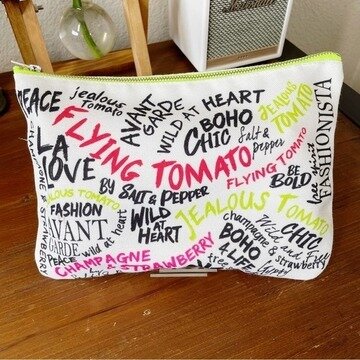 PEACE
jealous
Tomato
AVANT
GARDE
WILD AT HEART
BOHO
CHIC
Salt &
pepper
JEALOUS
TOMATO
FASHIONISTA
free spirit
CHAMPAGNE & STRAWBERRY
LA
LOVE
FLYING TOMATO
BY SALT & PEPPER
FLYING TOMATO
BE
BOLD
JEALOUS TOMATO
FASHION
AVANT
GARDE
PEACE
wild at heart
WILD
AT
HEART
JEALOUS TOMATO
champagne
& strawberry
CHIC
Wild and
BOHO
4 LIFE
CHAMPAGNE
& STRAWBERRY